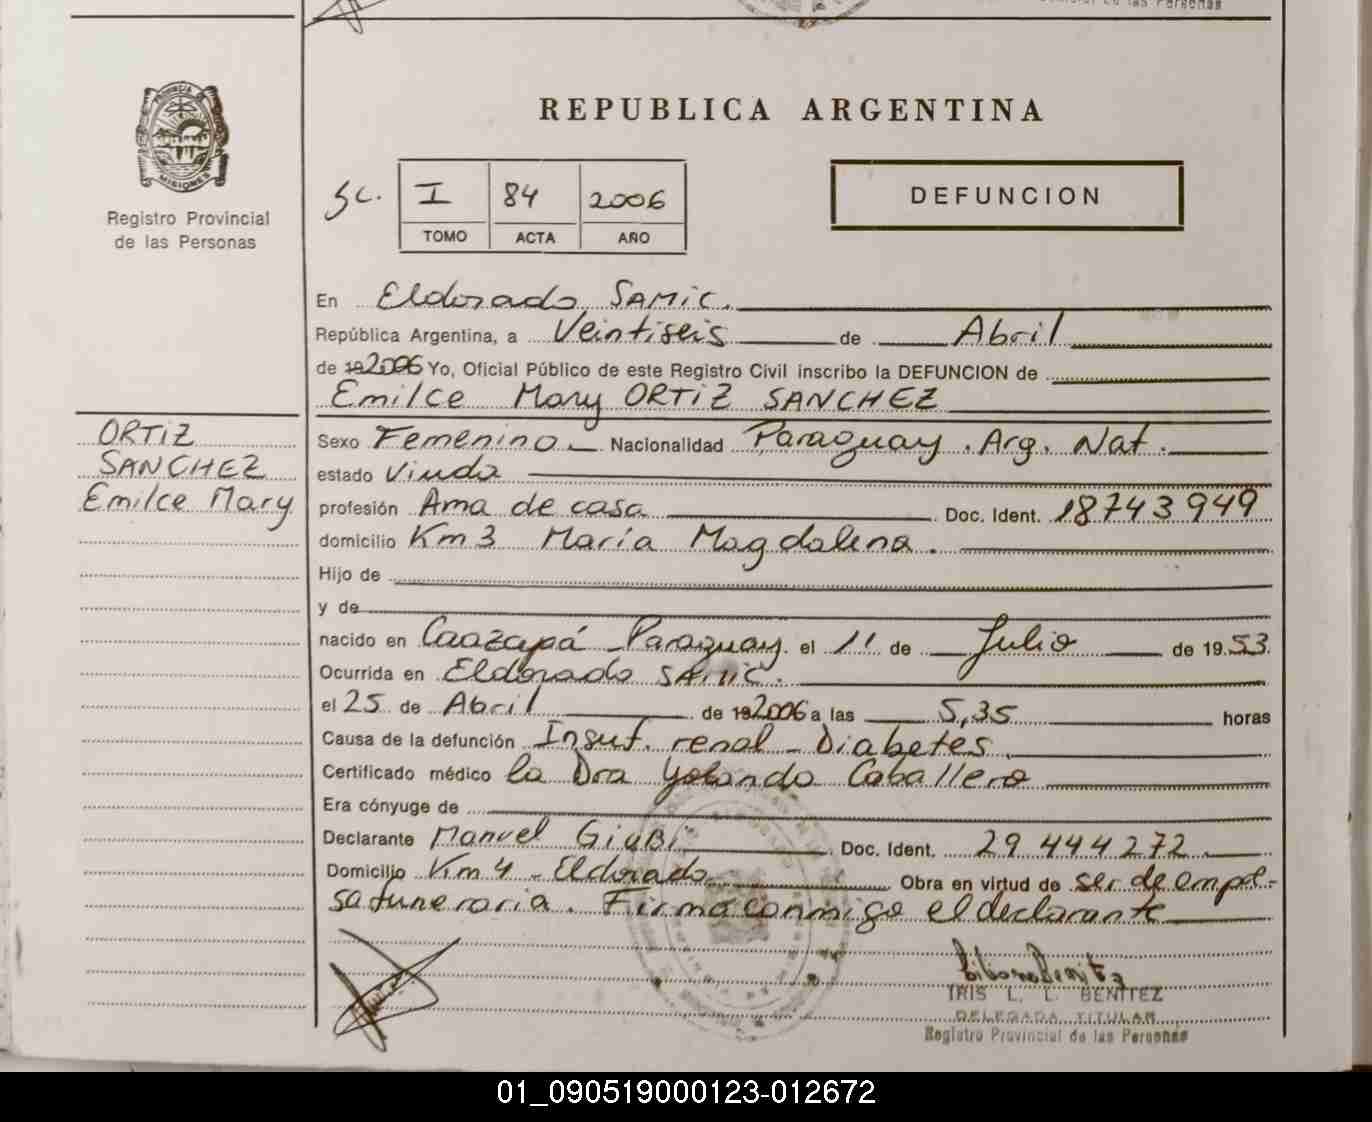 de las Personas
PROVINCIA DE
MISIONES
Registro Provincial
de las Personas
REPUBLICA ARGENTINA
Sc. I 84 2006
TOMO ACTA AÑO
DEFUNCION
En Eldorado SAMIC.
República Argentina, a Veintiseis de Abril
de 192006 Yo, Oficial Público de este Registro Civil inscribo la DEFUNCION de
Emilce Mary ORTIZ SANCHEZ
ORTIZ
SANCHEZ
Emilce Mary
Sexo Femenino Nacionalidad Paraguay. Arg. Nat.
estado Viuda
profesión Ama de casa Doc. Ident. 18743949
domicilio Km3 María Magdalena.
Hijo de
y de
nacido en Caazapá Paraguay. el 11 de Julio de 1953.
Ocurrida en Eldorado SAMIC.
el 25 de Abril de 192006 a las 5,35 horas
Causa de la defunción Insuf. renal - Diabetes
Certificado médico la Dra Yolanda Caballero
Era cónyuge de
Declarante Manuel Doc. Ident. 29 444 272
Domicilio Km 4 - Eldorado Obra en virtud de ser de empre-
sa funeraria. Firma conmigo el declarante
IRIS L. L. BENITEZ
DELEGADA TITULAR
Registro Provincial de las Personas
01_090519000123-012672